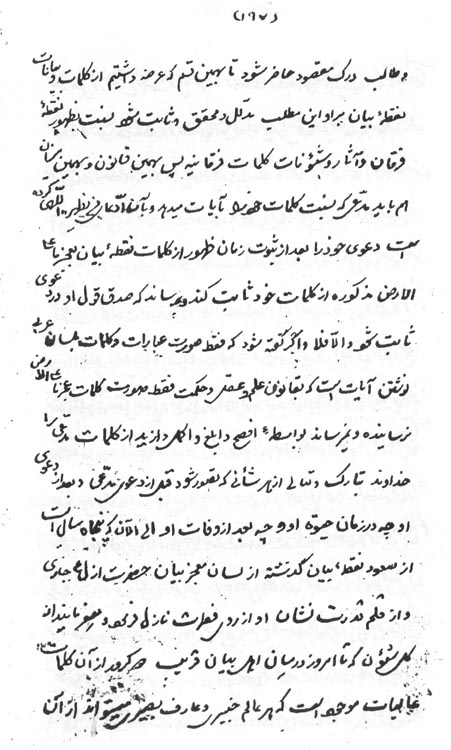 (۱۹۷)
و طالب درک مقصود حاضر شود تا بهمین قسم که عرضه داشتیم از کلمات و بیانات
نقطهٔ بیان بر او این مطلب مدلل و محقق و ثابت شود نسبت بظهور نقطهٔ
فرقان و آثار و شئونات کلمات فرقانیه پس بهمین قانون و بهمین میزان
هم باید مدعی که نسبت کلمات خود را بآیات میدهد و بآنها ادعای من یظهره اللهی کرده
است دعوی خود را بعد از ثبوت زمان ظهور از کلمات نقطهٔ بیان
الارض مذکوره از کلمات خود ثابت کند و برساند که صدق قول او در دعوی
ثابت شود والا فلا و اگر گفته شود که فقط صورت عبارات و کلمات
نوشتن آیات است که بقانون علم و عقل و حکمت فقط صورت کلمات
نرسانیده و نمیرساند بواسطهٔ افصح و ابلغ و اکمل و ازید از کلمات مدعی را
خداوند تبارک و تعالی از هر شأنی که تصور شود قبل از دعوی مدعی و بعد از دعوی
او چه در زمان حیوة او و چه بعد از وفات او الی الآن که پنجاه سال است
از صعود نقطهٔ بیان گذشته از لسان معجز بیان حضرت ازل جاری
و از قلم قدرت نشان او از روی فطرت نازل فرموده و
کل شئون که تا امروز در میان اهل بیان قریب صد کرور از آن کلمات
عالیات موجود است که هر عالم خبیر و عارف بصیری میتواند از آن